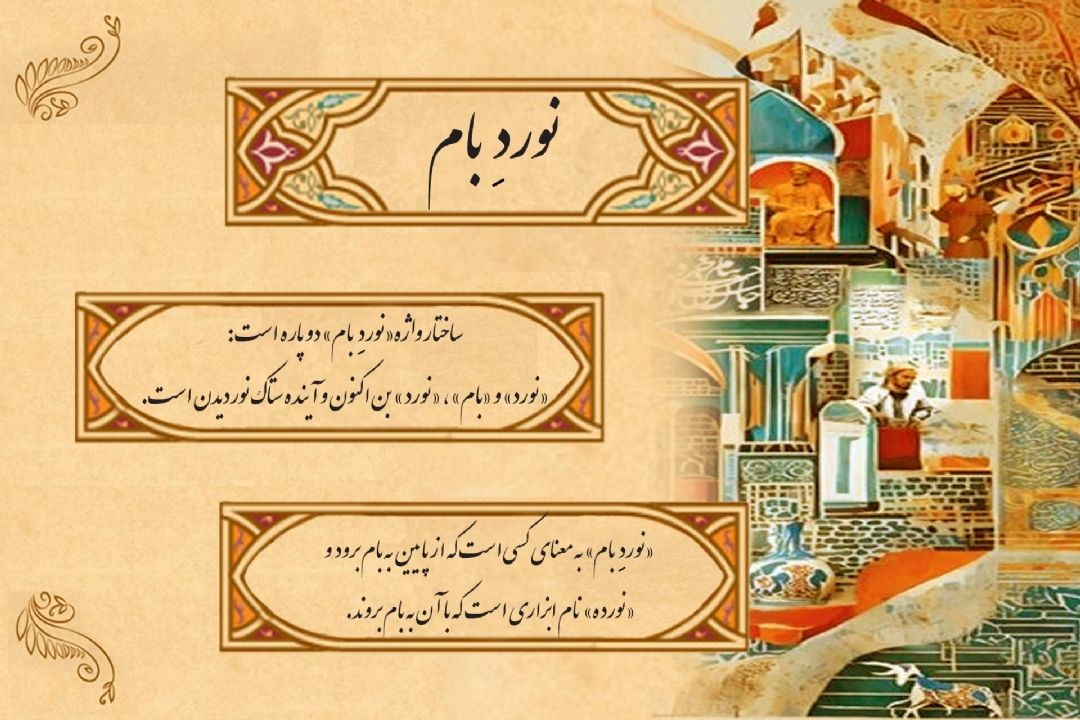 نوردِ بام
ساختار واژه «نوردِ بام» دو پاره است:
«نورد» و «بام» ، «نورد» بن اکنون و آینده ستاک نوردیدن است.
«نوردِ بام» به معنای کسی است که از پایین به بام برود و
«نورده» نام ابزاری است که با آن به بام بروند.